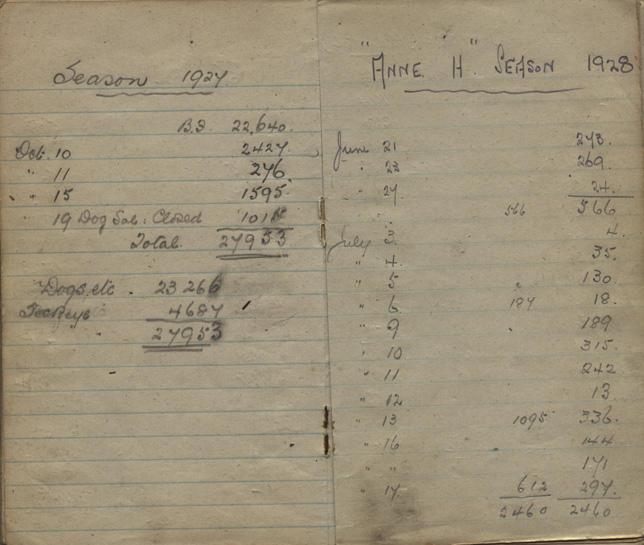 Season 1927.
B.F 22,640.
Oct. 10 2427
" 11 276
" 15 1595
19 Dog Sal: Closed 1015
Total 27953
Dogs, etc. 23 266
Sockeys 4687
27953
"ANNE H" SEASON 1928
June 21 273.
" 22 269.
" 27 24.
566 566
July 3 4.
" 4 35.
" 5 130
" 6 187 18.
" 9 189
" 10 315
" 11 242
" 12 13
" 13 1095 336.
" 16 144
" " 171
" 17 612 297.
2460 2460